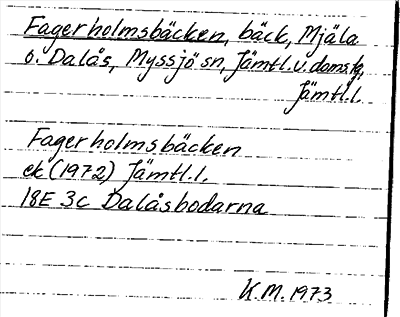 Fagerholmsbäcken, bäck, Mjäla
o. Dalås, Myssjö sn, Jämtl. v. doms.g,
Jämtl.l.
Fagerholmsbäcken
ek (1972) Jämtl.l.
18E 3c Dalåsbodarna
K.M. 1973